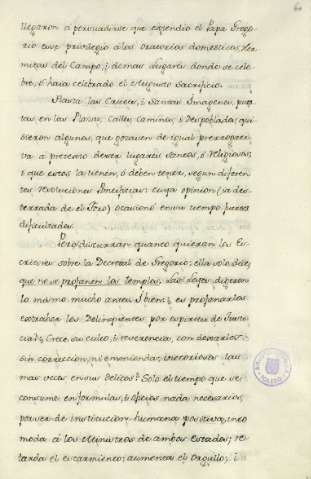 llegaron a persuadirse que estendio el Papa Grego-
rio este privilegio à las oratorios domesticos, Her-
mitas del Campo, i demas lugares donde se cele-
bre, ò haia celebrado el Augusto Sacrificio.
Hasta las Cruces, i Santas Imagenes, pues-
tas en las Plazas, Calles, Caminos, i Despoblados, qui-
sieron algunos, que gozasen de igual prerrogati-
va a pretexto de ser lugares Santos, ò Religiosos;
i que estos la tienen, ò deben tener, segun diferen-
tes resoluciones Pontificias: cuya opinion (ya des-
terrada de el Foro) ocasionò en su tiempo fuertes
dificultades.
Pero discurran quanto quieran los Es-
critores sobre la Decretal de Gregorio; ella solo dice,
que no se profanen los templos. Las Leyes digeron
lo mismo mucho antes. I bien, es profanarlos
extraher los Delinquentes por espiritu de Justi-
cia? Crece su culto, i reverencia, con dexarlos
sin correccion, ni enmienda, victoriosos las
mas veces en sus delitos? Solo el tiempo que se
consume en formulas, i apices nada necesarios,
por ser de institucion humana positiva, inco-
moda à los Ministros de ambos Estados; re-
tarda el escarmiento; aumenta el orgullo; i